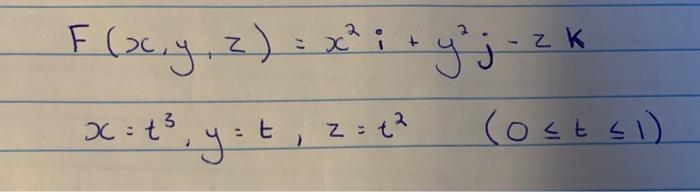 F (x, y, z) = x² i + y² j - z k
x = t³, y = t, z = t² (0 ≤ t ≤ 1)